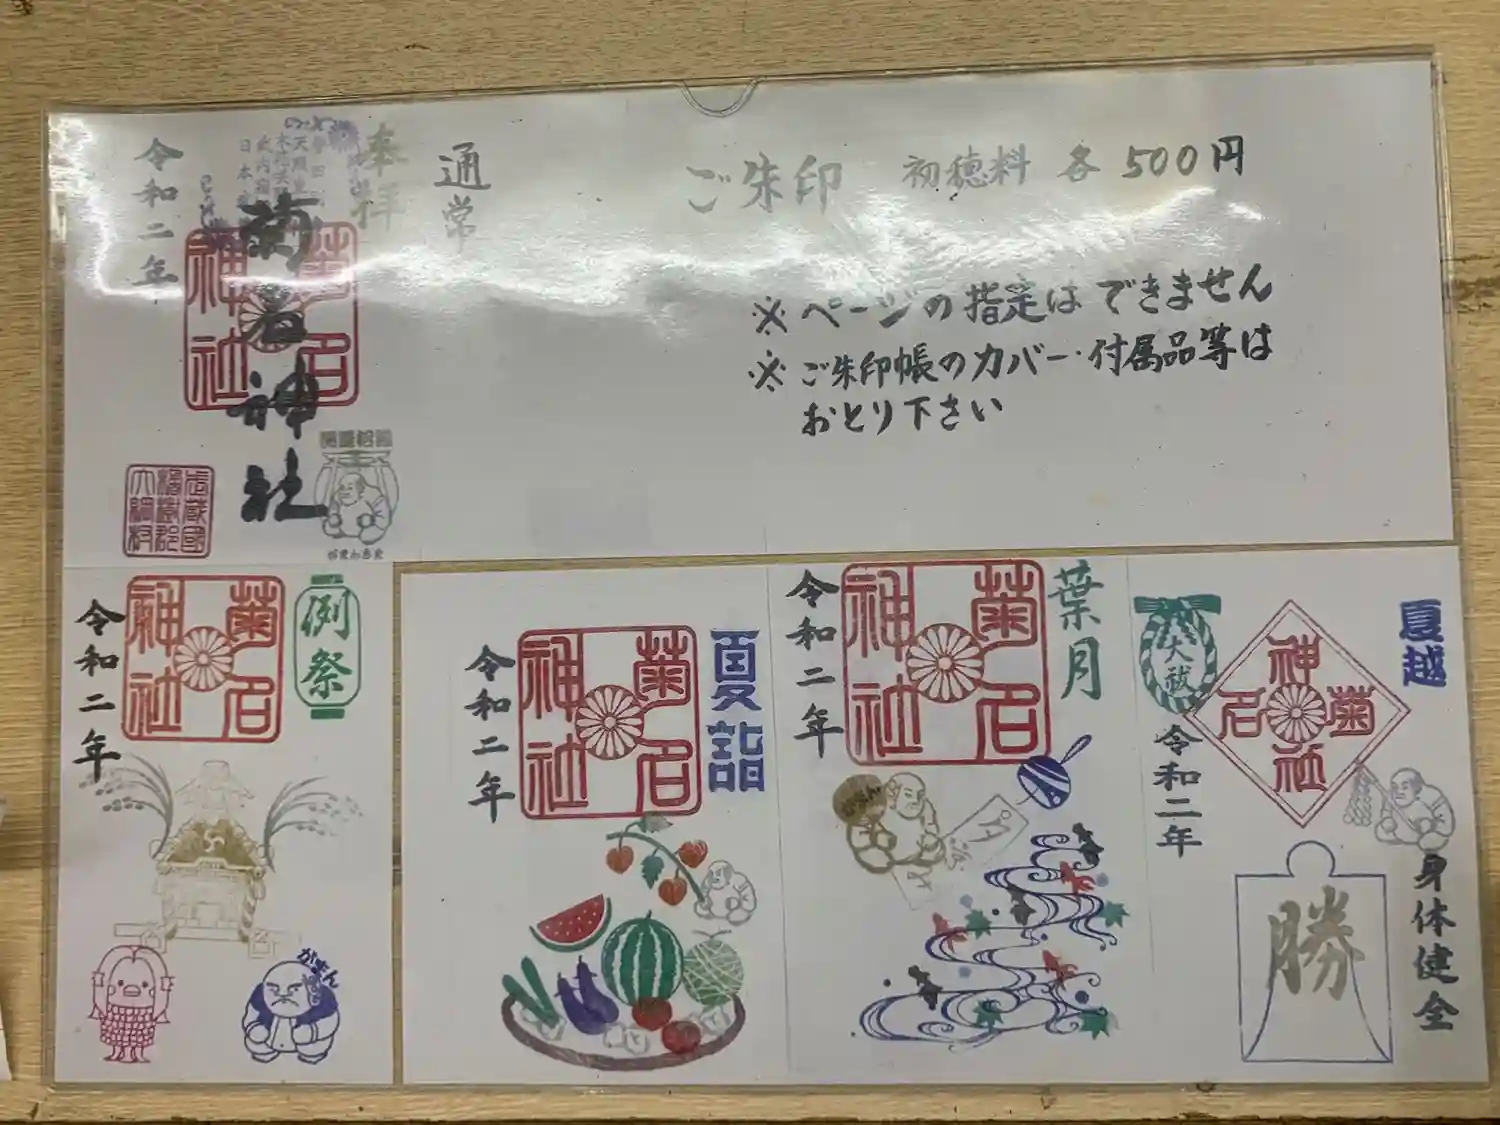 ご朱印 初穂料 各500円
※ページの指定はできません
※ご朱印帳のカバー・付属品等は
おとり下さい
通常
奉拝
菊名神社
菊名神社
令和二年
武蔵國
橘樹郡
大綱村
例祭
菊名神社
令和二年
がまん
夏詣
菊名神社
令和二年
葉月
菊名神社
令和二年
夏越
大祓
菊名神社
令和二年
身体健全
勝